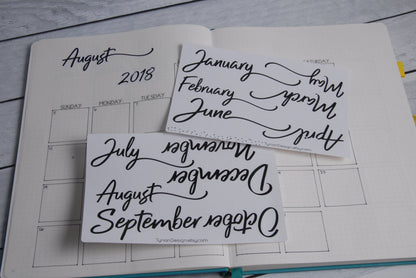 August
2018
SUNDAY MONDAY TUESDAY SATURDAY
January May
February March
June April
July November
December
August
September October
TynanDesignsEtsy.com